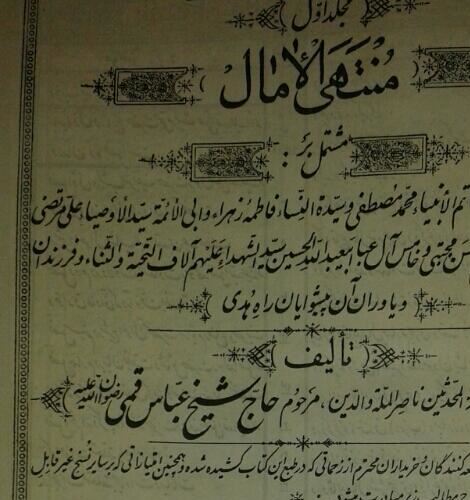 مجلد اول
مُنتَهَی الْآمَالْ
مشتمل بر:
تم الأنبیاء محمد مصطفی و سیّدة النساء فاطمه زهراء و ابی الأئمّة سیّد الأوصیاء علی مرتضی
مجتبی و خامس آل عبا ابیعبدالله الحسین سیّد الشهداء علیهم آلاف التحیّة والثناء و فرزندان
و یاوران آن پیشوایان راه هُدی
تألیف
المحدثین ناصر الملة والدین، مرحوم حاج شیخ عبّاس قمی رضوان الله علیه
کنندگان و خریداران محترم از زحماتی که در طبع این کتاب کشیده شده و همچنین امتیازاتی که بر سایر نسخ غیر قابل